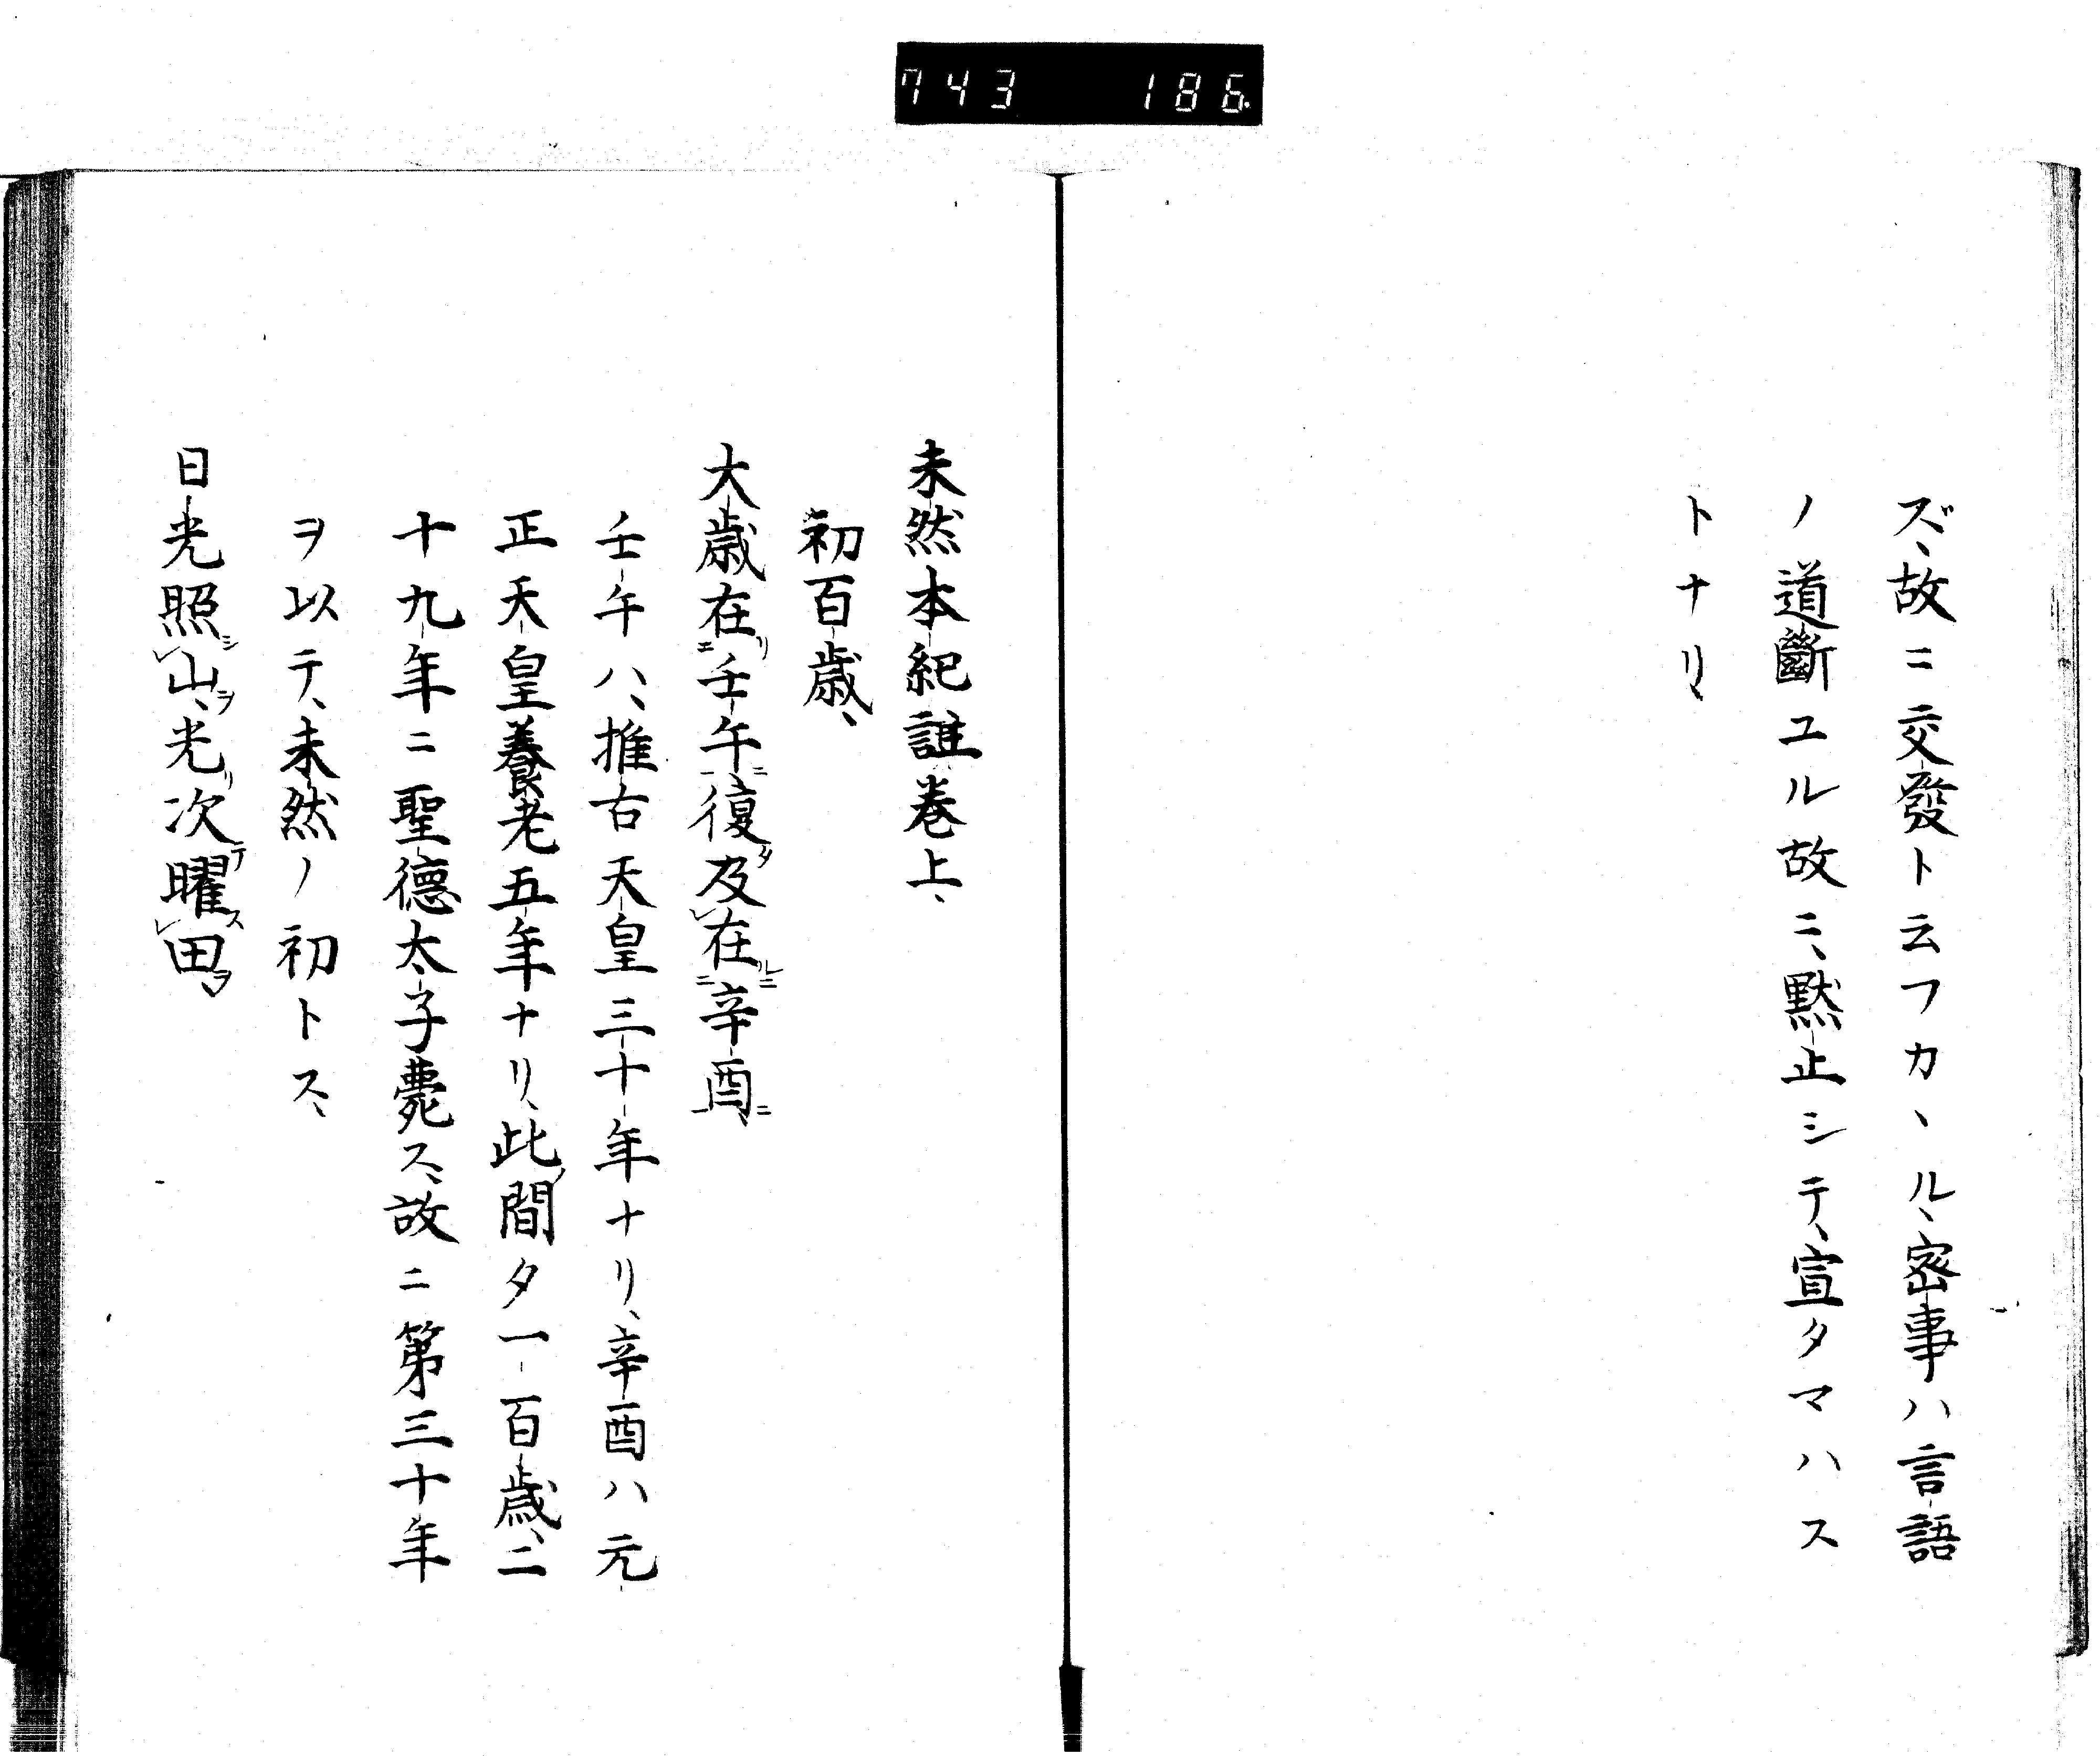 743 186
ズ、故ニ交發ト云フカヽル、密事ハ言語
ノ道斷ユル故ニ、黙止シテ、宣タマハス
トナリ、
未然本紀誰巻上、
初百歳、
大歳在リニ壬午ニ復タ及レ在ルニニ辛酉ニ、
壬午ハ、推古天皇三十年ナリ、辛酉ハ元
正天皇養老五年ナリ、此ノ間タ一百歳、二
十九年ニ聖德太子薨ス、故ニ第三十年
ヲ以テ、未然ノ初トス、
日光照シレ山ヲ、光リ次テ曜スレ田ヲ、